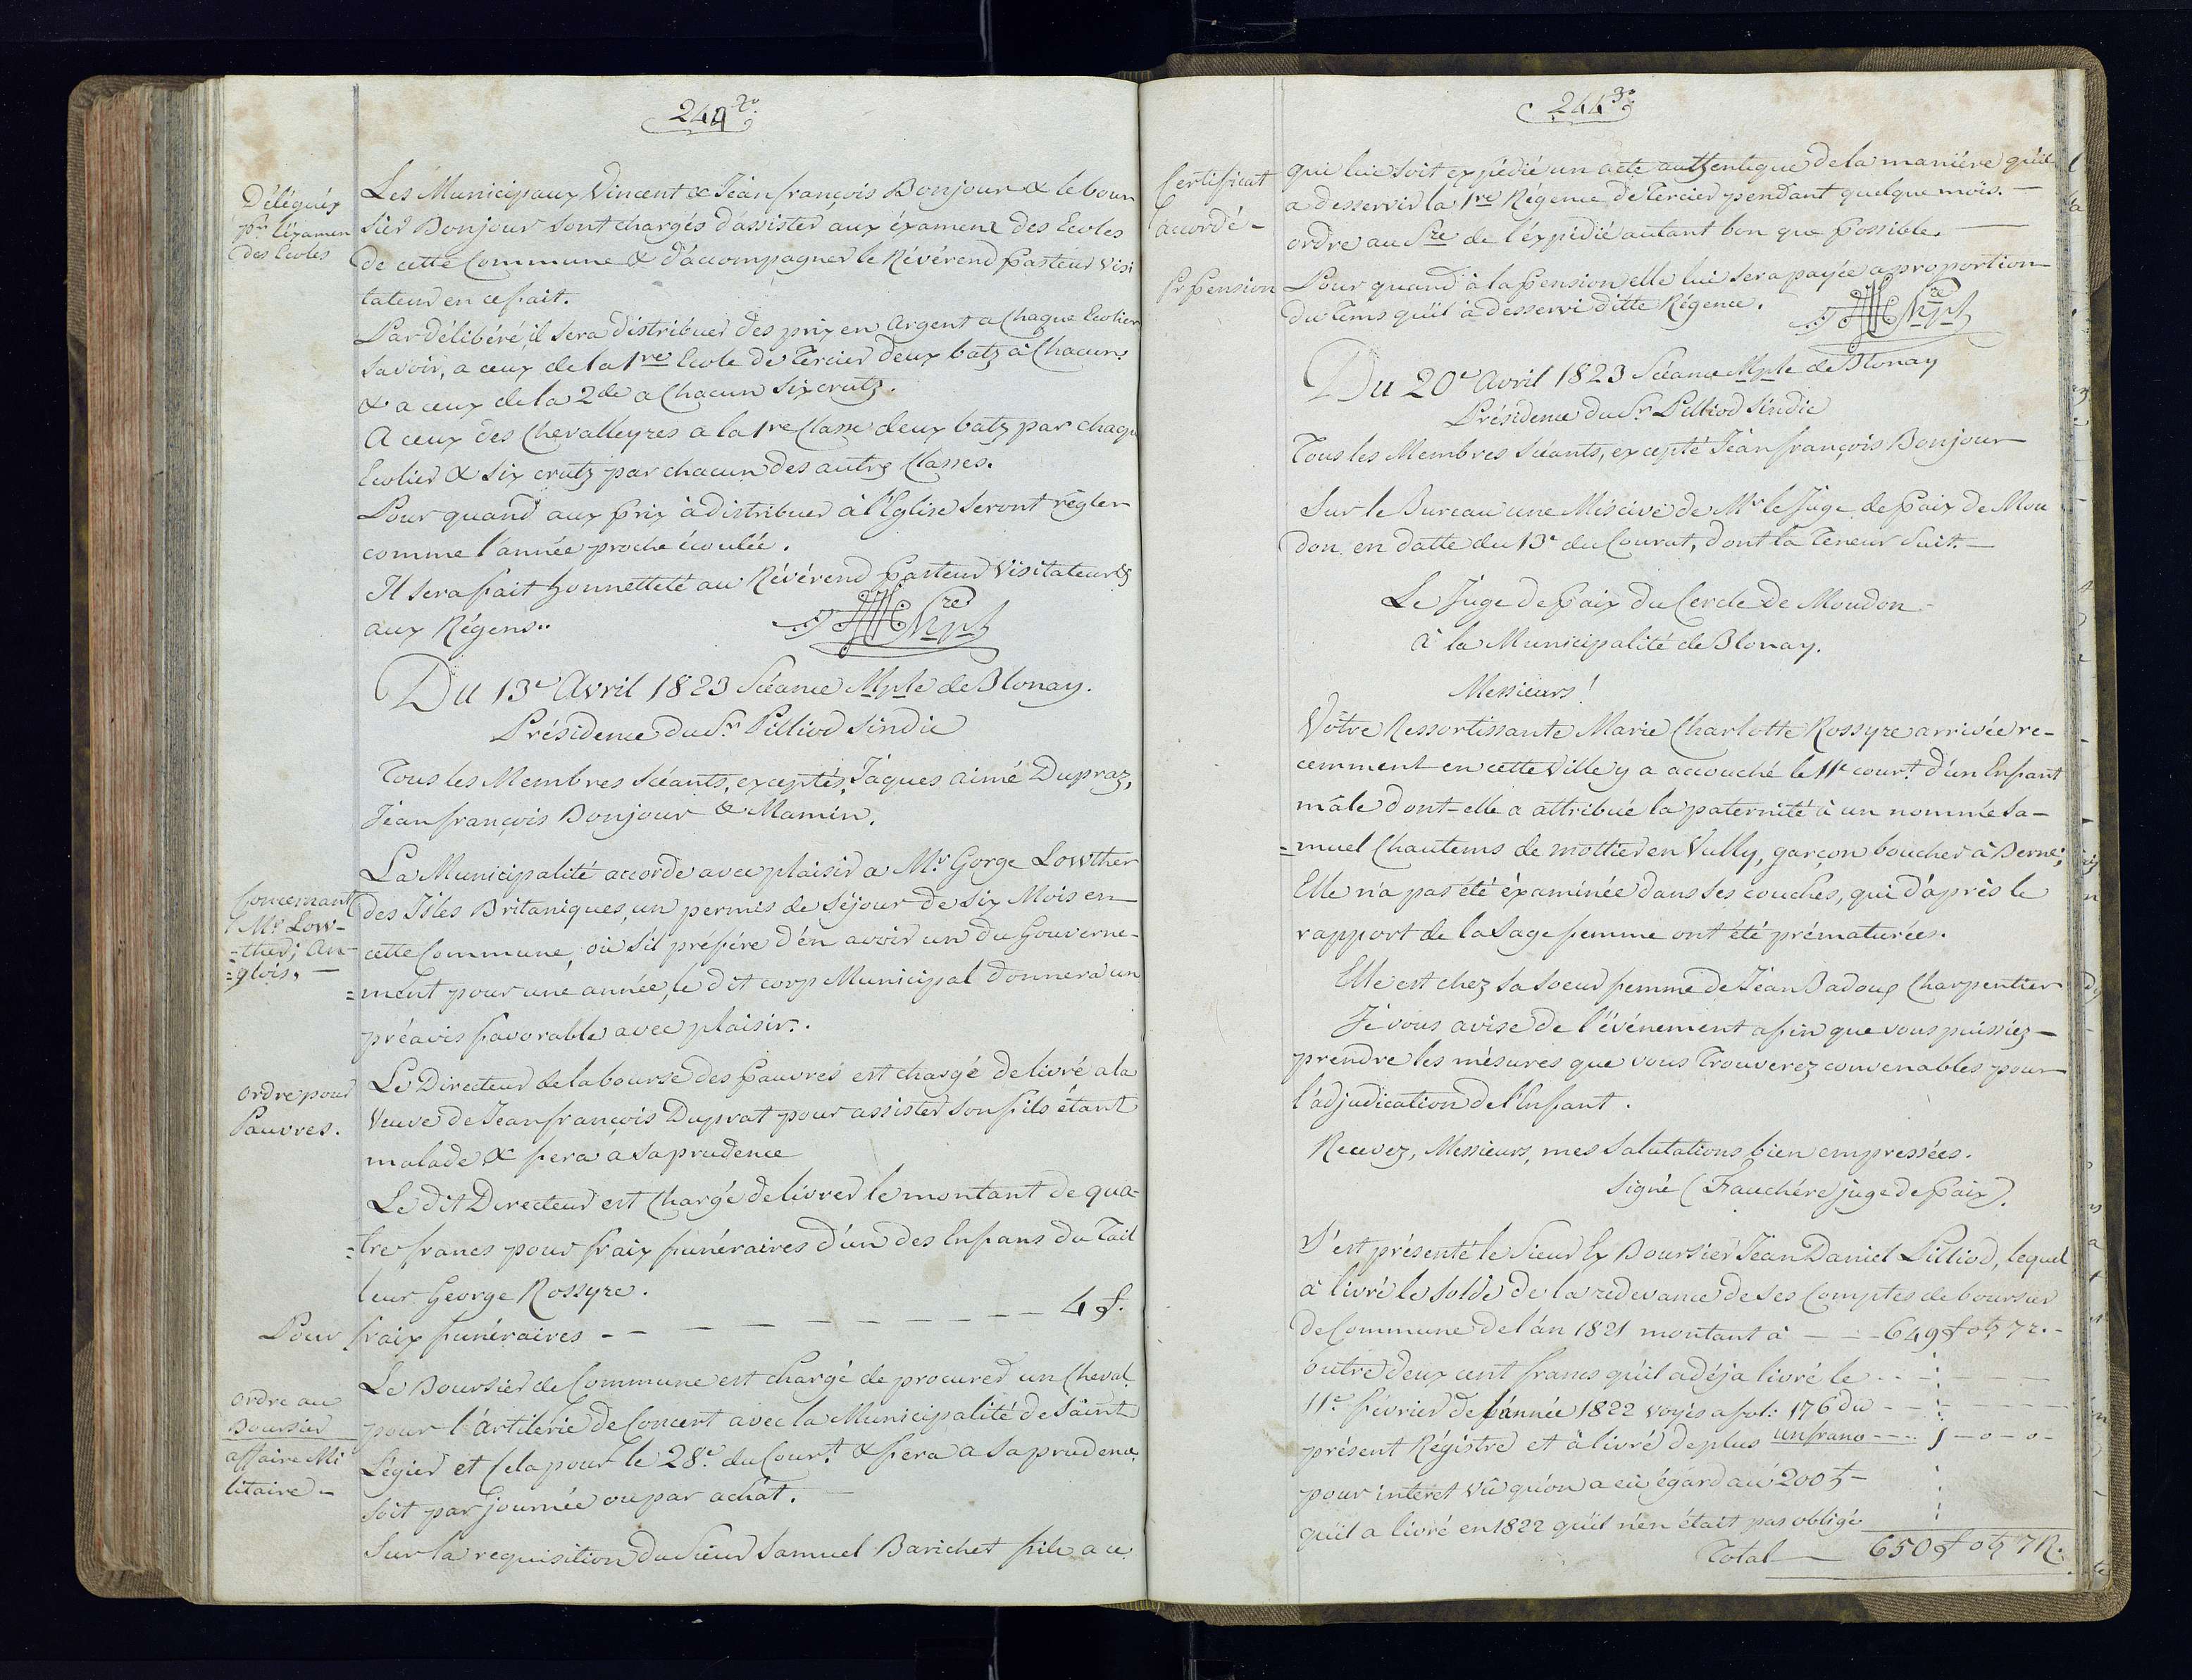 244 2º
Délégués
pr l'éxamen
des Ecoles
Les Municipaux Vincent & Jean françois Bonjour & le bour
sier Bonjour sont chargés d'assister aux éxamens des Ecoles
de cette Commune & d'accompagner le Révérend Pasteur Visi
tateur en ce fait.
Par délibéré, il sera distribuer des prix en Argent a Chaque Ecolier
Savoir, a ceux de la 1re Ecole de Tercier deux batz à Chacun.
& a ceux de la 2de a Chacun six crutz.
A ceux des Chevalleyres a la 1re Classe deux batz par chaque
Ecolier & six crutz par chacun des autres Classes.
Pour quand aux prix à distribuer à l'Eglise seront régler
comme l'année proche écoulée.
Il sera fait honnetteté au Révérend Pasteur Visitateur &
aux Régens..
Du 13e Avril 1823 Séance Mple de Blonay.
Présidence du Sr. Pilliod Sindic
Tous les Membres Séants, exceptés, Jaques aimé Dupraz,
Jean françois Bonjour & Mamin.
Concernant
Mr. Low-
=ther; An-
=glois. —
La Municipalité accorde avec plaisir a Mr. Gorge Lowther
des Isles Britaniques, un permis de séjour de six Mois en
cette Commune, où s'il préfère d'en avoir un du Gouverne-
=ment pour une année, le dit corp Municipal donnera un
préavis favorable avec plaisir..
ordre pour
Pauvres.
Le Directeur de la bourse des Pauvres est chargé de livré a la
Veuve de Jean françois Duprat pour assister son fils étant
malade & fera a sa prudence
Le dit Directeur est Chargé de livrer le montant de qua=
=tre francs pour fraix funéraires d'un des Enfans du Tail
leur George Rossyre.
Pour fraix funéraires - - — — — — — — — — 4 f.
ordre au
Boursier
affaire Mi
litaire -
Le Boursier de Commune est chargé de procurer un Cheval
pour l'artilerie de Concert avec la Municipalité de Saint
Légier et Cela pour le 28e. du Court. & fera a sa prudence
soit par journée ou par achât. —
Sur la requisition du Sieur Samuel Barichet fils a ce
244 3º
Certificat
accordé -
qui lui soit expédié un acte authentique de la manière qu'il
a desservir la 1re Régence de Tercier pendant quelque mois. —
ordre au Sre de l'éxpédié autant bon que Possible. —
Pr Pension
Pour quand à la Pension elle lui sera payée a proportion
du Tems qu'il à desservi ditte Régence.
Du 20e Avril 1823 Séance Mple de Blonay
Présidence du Sr. Pilliod Sindic
Tous les Membres Séants, excepté Jean françois Bonjour
Sur le Bureau une Miscive de Mr le Juge de Paix de Mou
don en datte du 13e du Courat, dont la Teneur Suit. —
Le Juge de Paix du Cercle de Moudon
à la Municipalité de Blonay.
Messieurs!
Vôtre Ressortissante Marie Charlotte Rossyre arrivée re-
cemment en cette Ville y a accouché le 11e court. d'un Enfant
mâle dont-elle a attribué la paternité à un nommé Sa-
=muel Chautems de mottier en Vully, garçon boucher à Berne;
Elle n'a pas été éxaminée dans ses couches, qui d'après le
rapport de la Sage femme ont été prématurées.
Elle est chez sa soeur femme de Jean Badoux Charpentier
Je vous avise de l'événement afin que vous puissiez —
prendre les mésures que vous Trouverez convenables pour
l'adjudication de l'Enfant.
Recevez, Messieurs, mes Salutations bien empressées.
Signé (Fauchére juge de Paix).
S'est présenté le Sieur Ex Boursier Jean Daniel Pilliod, lequel
à livré le solde de la redevance de ses Comptes de boursier
de Commune de l'an 1821 montant à — — 649 f o ₶ 7 r. -
outre deux cent francs qu'il a déja livré le - - -
11e février de l'année 1822 voyés a fol: 176 du - - -
présent Régistre et à livré de plus un franc - - - 1 - o - o -
pour interet vû qu'on a eû égard aû 200 ₶ -
qu'il a livré en 1822 qu'il n'en était pas obligé
Total — 650 f o ₶ 7 R.